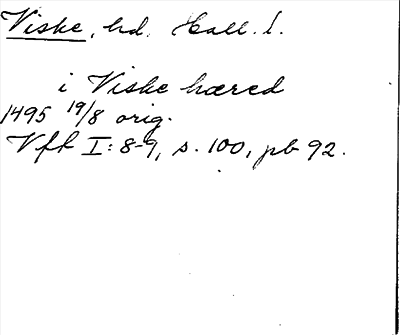 Viske, hd. Hall. l.
i Viske hæred
1495 19/8 orig.
Vfh I: 8-9, s. 100, pb 92.